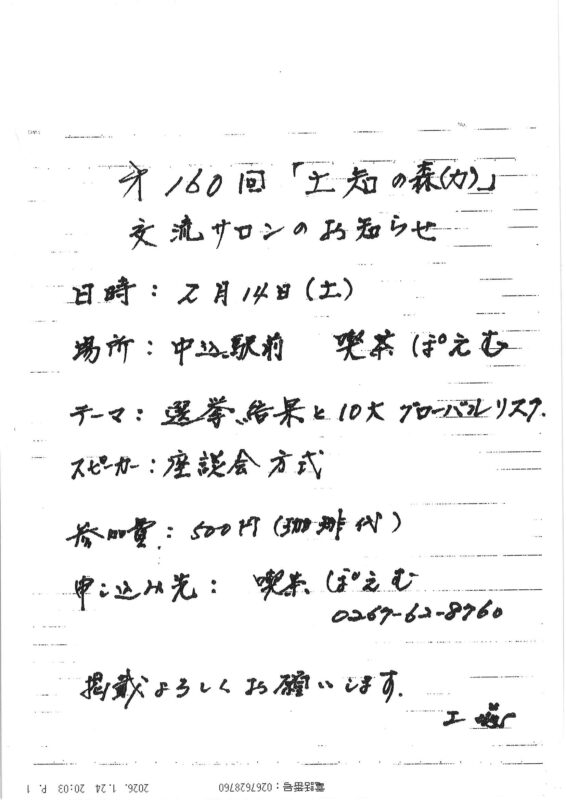 第160回「土知の森(力)」
交流サロンのお知らせ
日時：2月14日(土)
場所：中込駅前 喫茶 ぽえむ
テーマ：選挙結果と10大グローバルリスク.
スピーカー：座談会方式
参加費：500円(珈琲代)
申し込み先： 喫茶 ぽえむ
0267-62-8760
掲載よろしくお願いします.
工
2026. 1.24 20:03 P. 1
電話番号：0267628760